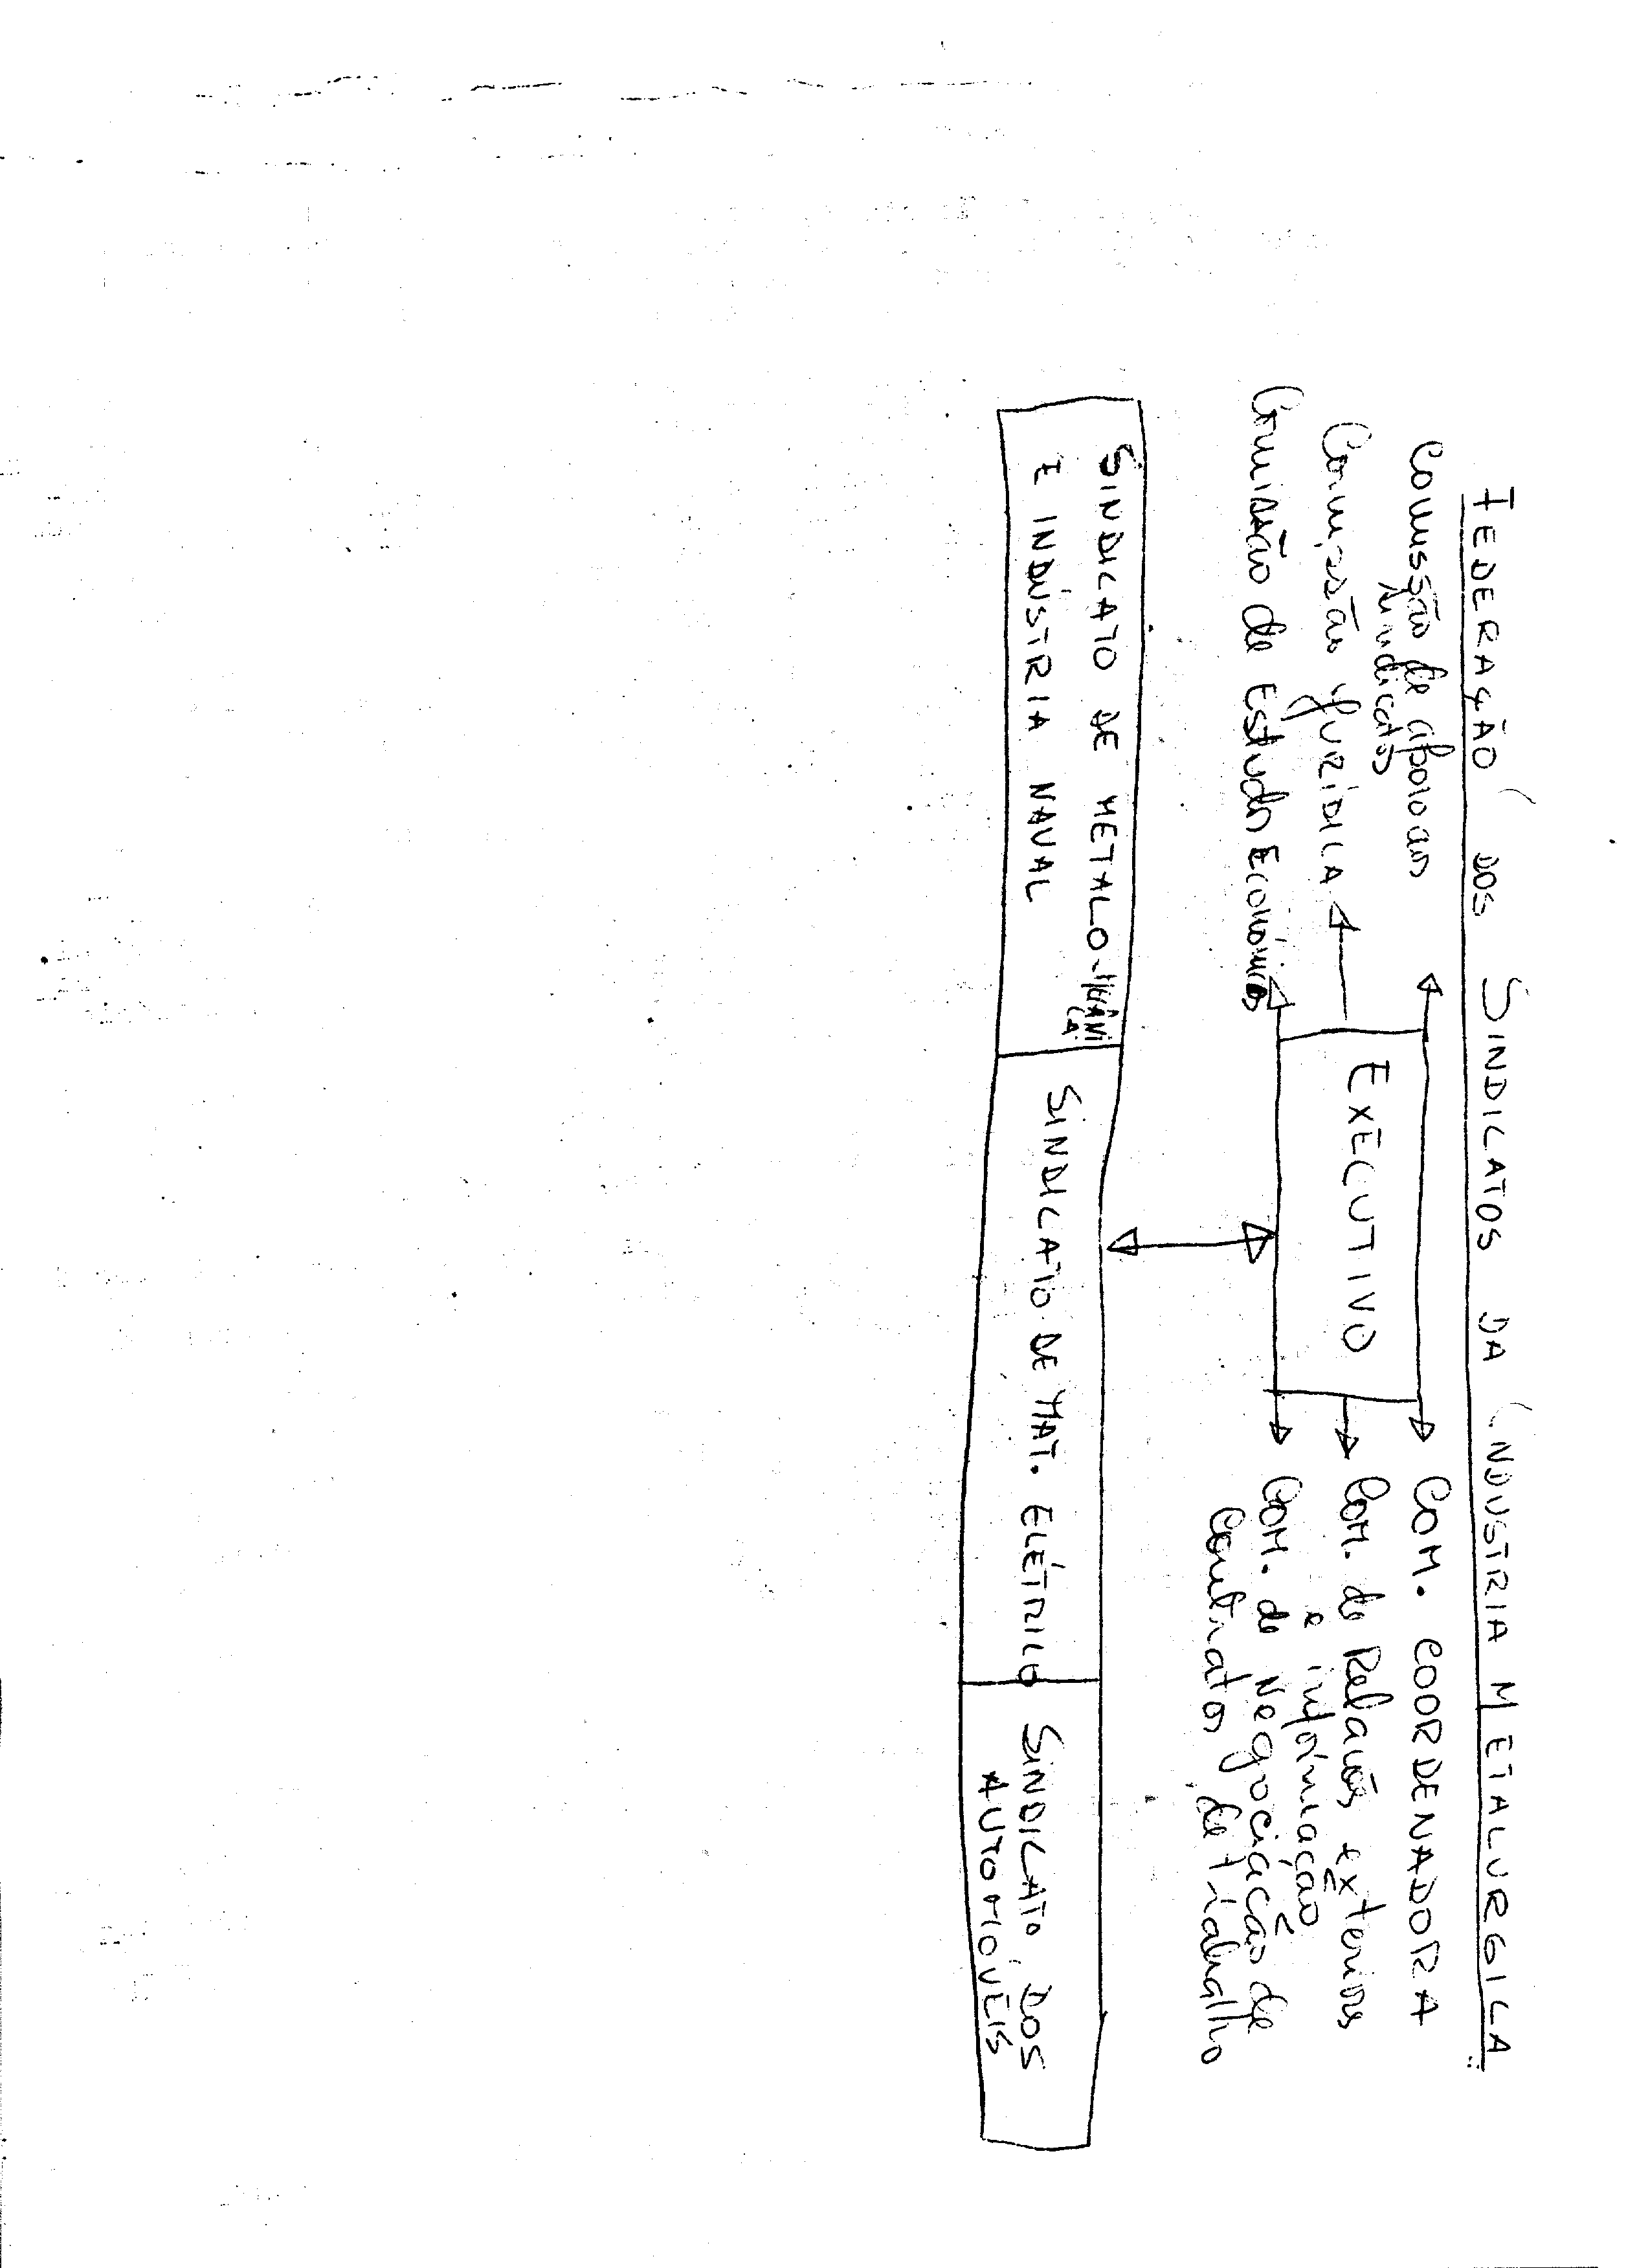 FEDERAÇÃO DOS SINDICATOS DA INDUSTRIA METALURGICA
Comissão de apoio aos
sindicatos
Comissão JURÍDICA
Comissão de Estudos Económicos
EXECUTIVO
COM. COORDENADORA
COM. de Relações exteriores
e informação
COM. de Negociação de
Contratos de trabalho
SINDICATO DE METALO-MECÂNI
CA
E INDÚSTRIA NAVAL
SINDICATO DE MAT. ELÉTRICO
SINDICATO DOS
AUTOMOVÉIS